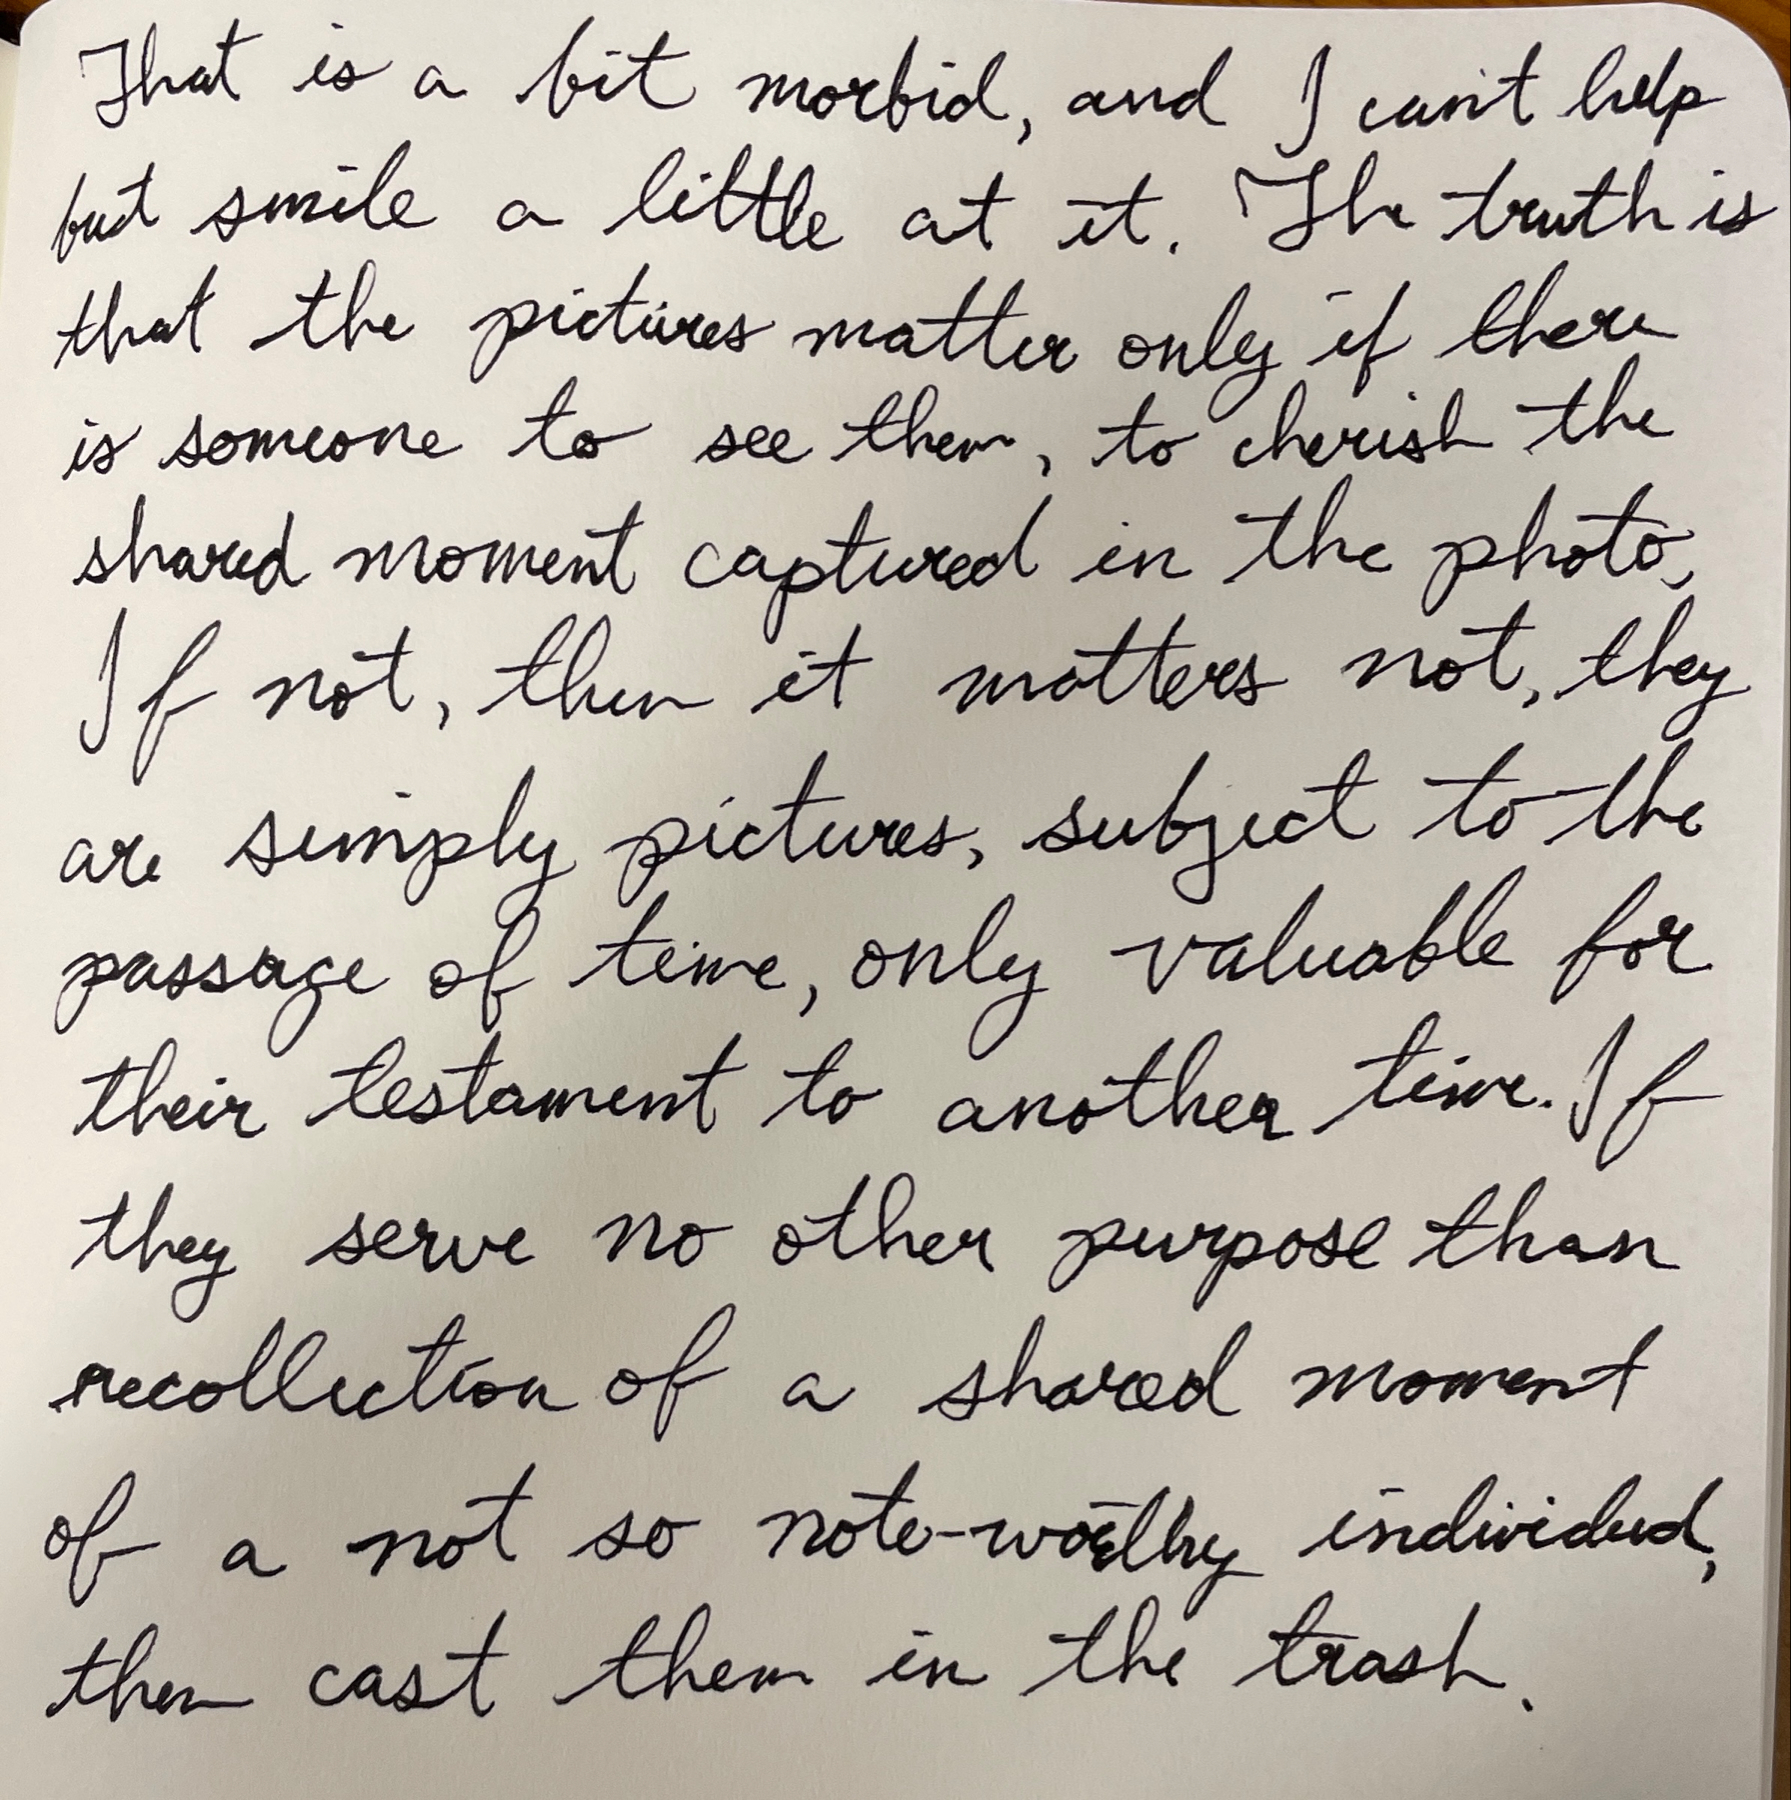 That is a bit morbid, and I can't help
but smile a little at it. The truth is
that the pictures matter only if there
is someone to see them, to cherish the
shared moment captured in the photo.
If not, then it matters not, they
are simply pictures, subject to the
passage of time, only valuable for
their testament to another time. If
they serve no other purpose than
recollection of a shared moment
of a not so note-worthy individual,
then cast them in the trash.